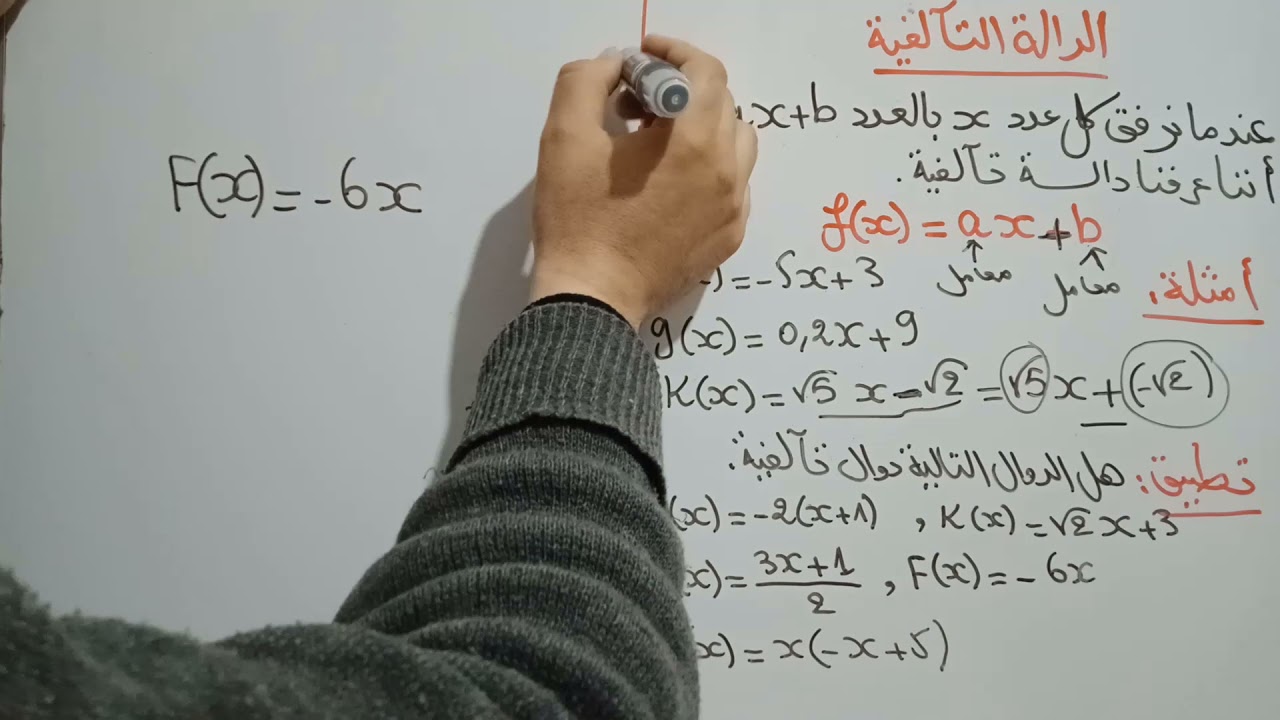 الدالة التآلفية
عندما نرفق كل عدد x بالعدد x+b
أننا عرفنا دالة تآلفية.
f(x) = ax+b
معامل معامل
أمثلة:
) = -5x+3
g(x) = 0,2x+9
K(x) = √5 x - √2 = √5x + (-√2)
تطبيق: هل الدوال التالية دوال تآلفية.
(x) = -2(x+1) , K(x) = √2x+3
(x) = (3x+1)/2 , F(x) = -6x
(x) = x(-x+5)
F(x) = -6x